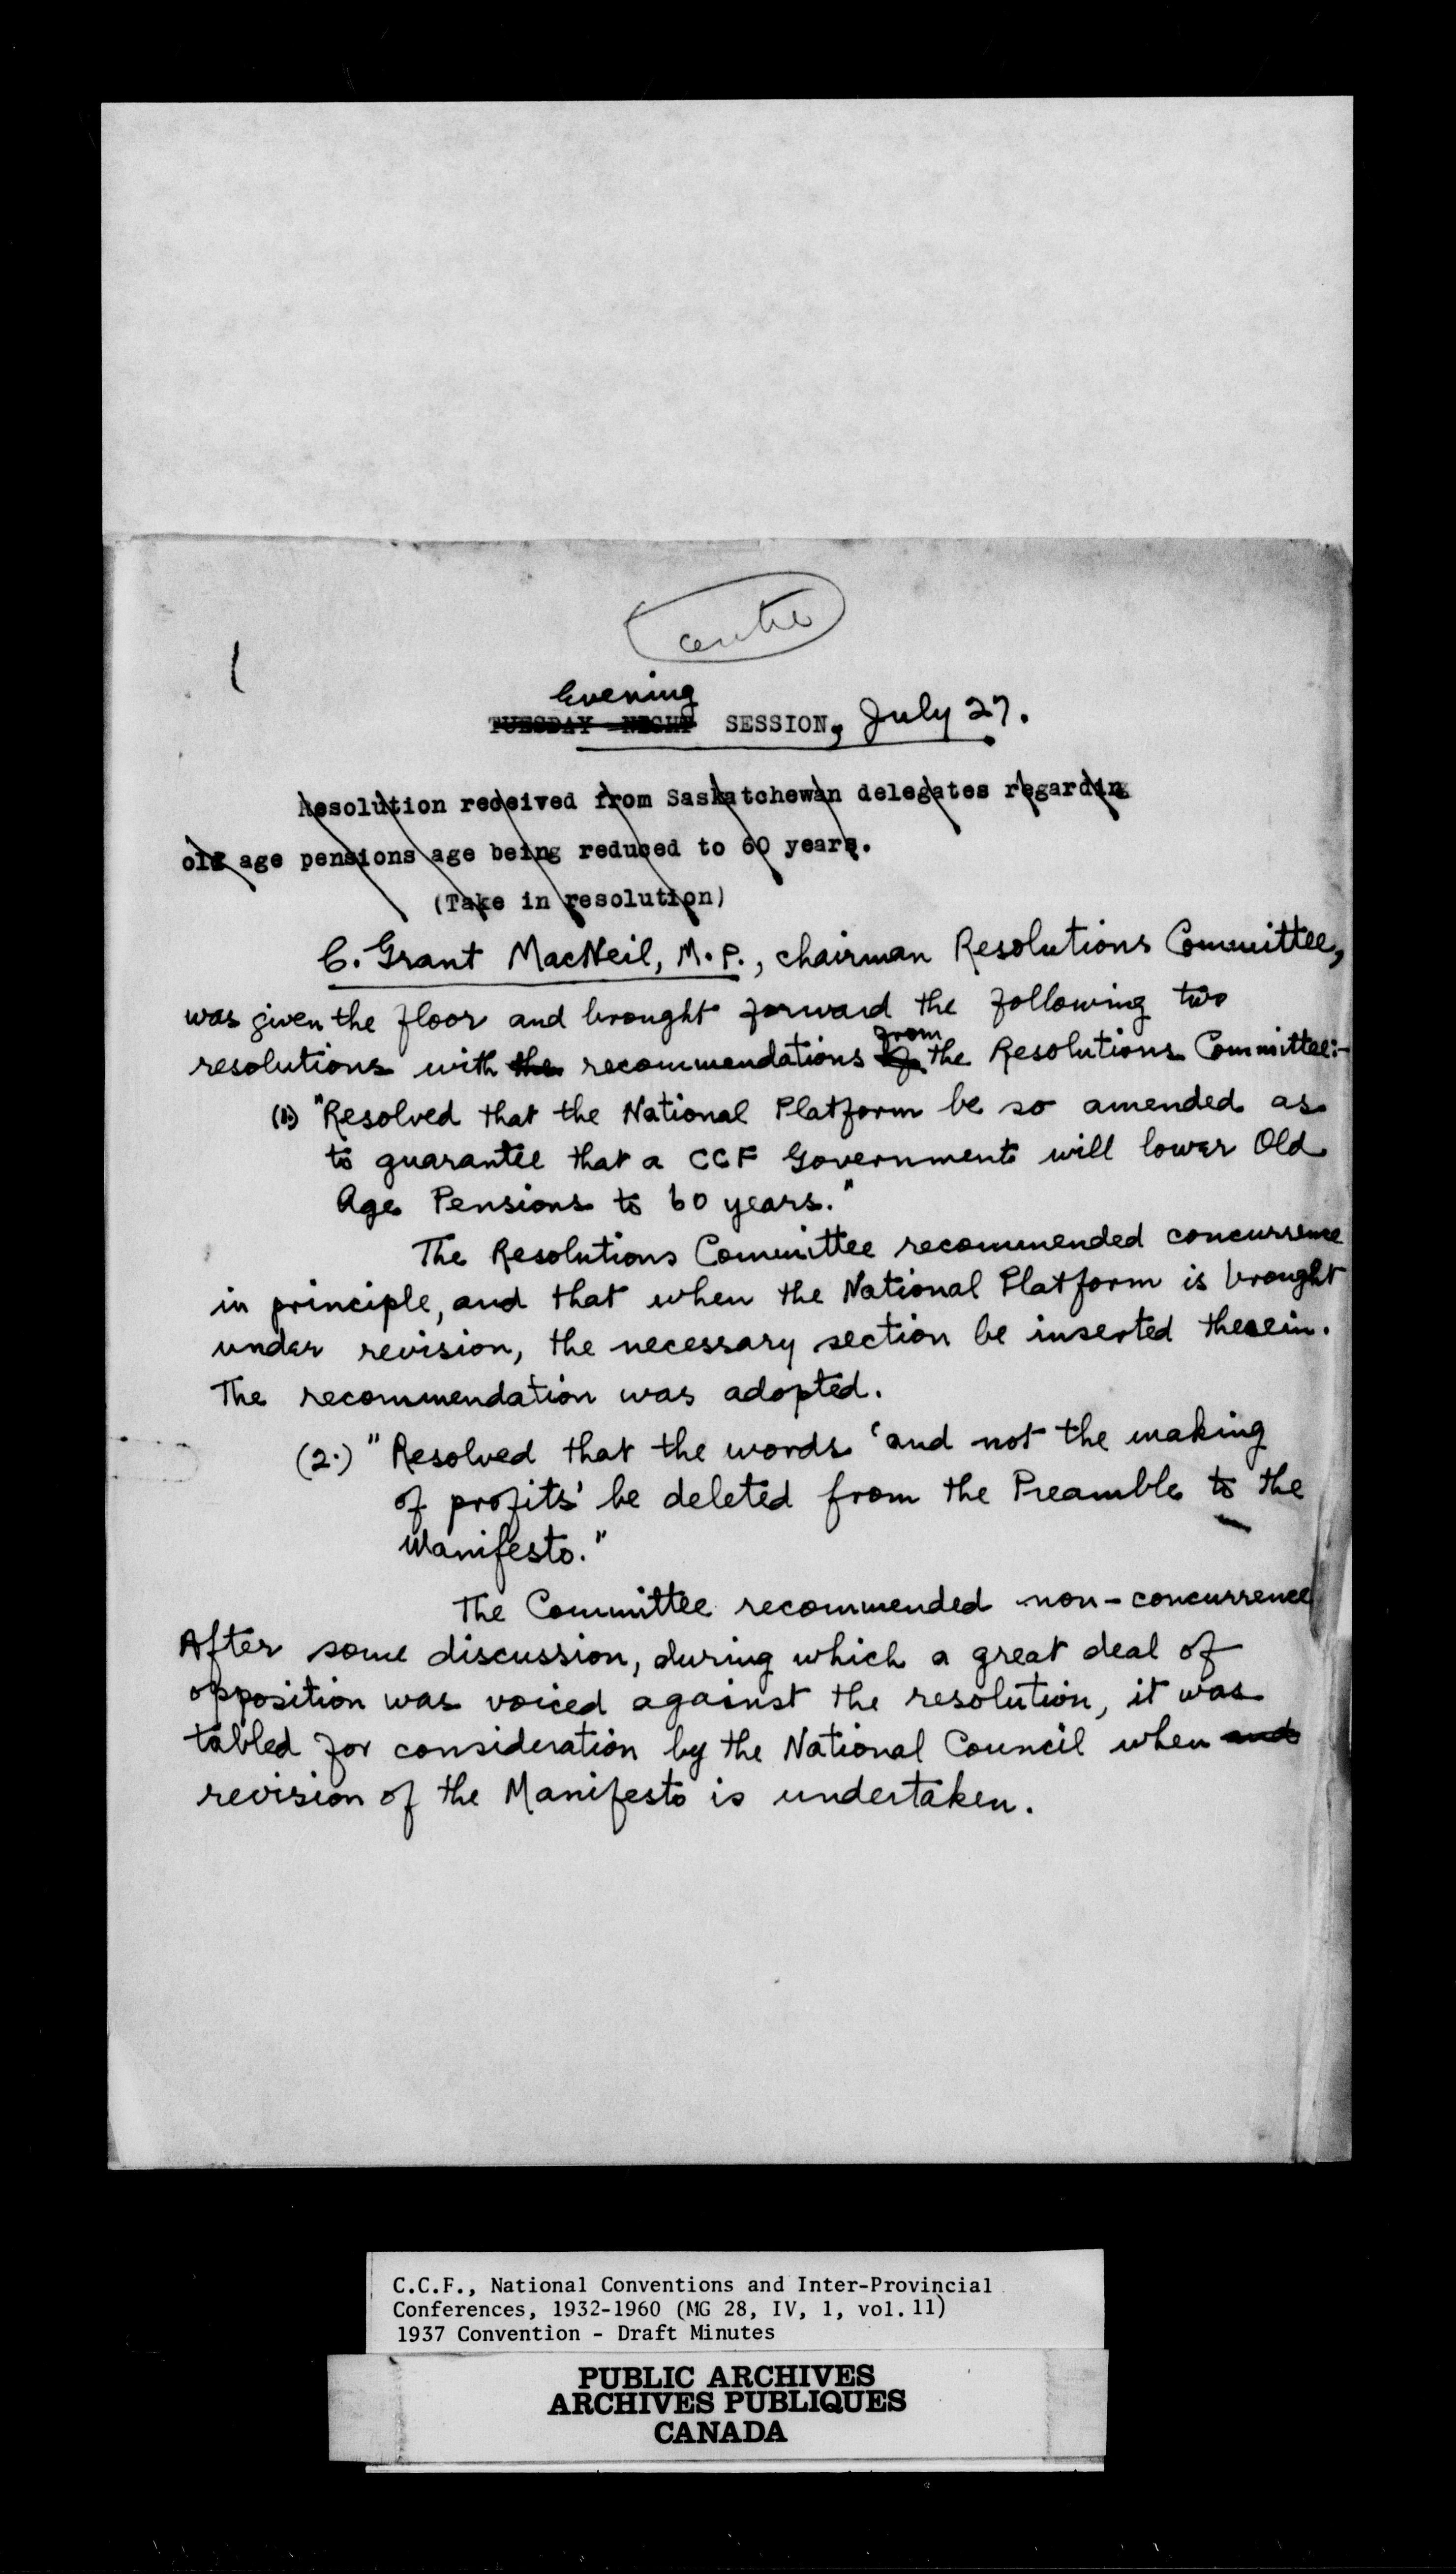 centre
Evening
TUESDAY NIGHT SESSION, July 27.
Resolution received from Saskatchewan delegates regarding
old age pensions age being reduced to 60 years.
(Take in resolution)
C. Grant MacNeil, M.P., chairman Resolutions Committee,
was given the floor and brought forward the following two
from
resolutions with the recommendations of the Resolutions Committee:-
(1) "Resolved that the National Platform be so amended as
to guarantee that a CCF Government will lower Old
Age Pensions to 60 years."
The Resolutions Committee recommended concurrence
in principle, and that when the National Platform is brought
under revision, the necessary section be inserted therein.
The recommendation was adopted.
(2.) "Resolved that the words 'and not the making
of profits' be deleted from the Preamble to the
Manifesto."
The Committee recommended non-concurrence
After some discussion, during which a great deal of
opposition was voiced against the resolution, it was
tabled for consideration by the National Council when and
revision of the Manifesto is undertaken.
C.C.F., National Conventions and Inter-Provincial
Conferences, 1932-1960 (MG 28, IV, 1, vol. 11)
1937 Convention - Draft Minutes
PUBLIC ARCHIVES
ARCHIVES PUBLIQUES
CANADA